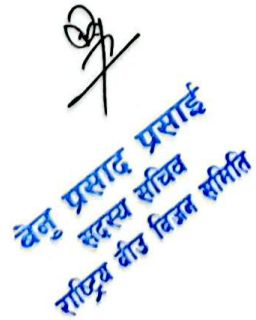 वेनु प्रसाद प्रसाई
सदस्य सचिव
राष्ट्रिय वीउ विजन समिति